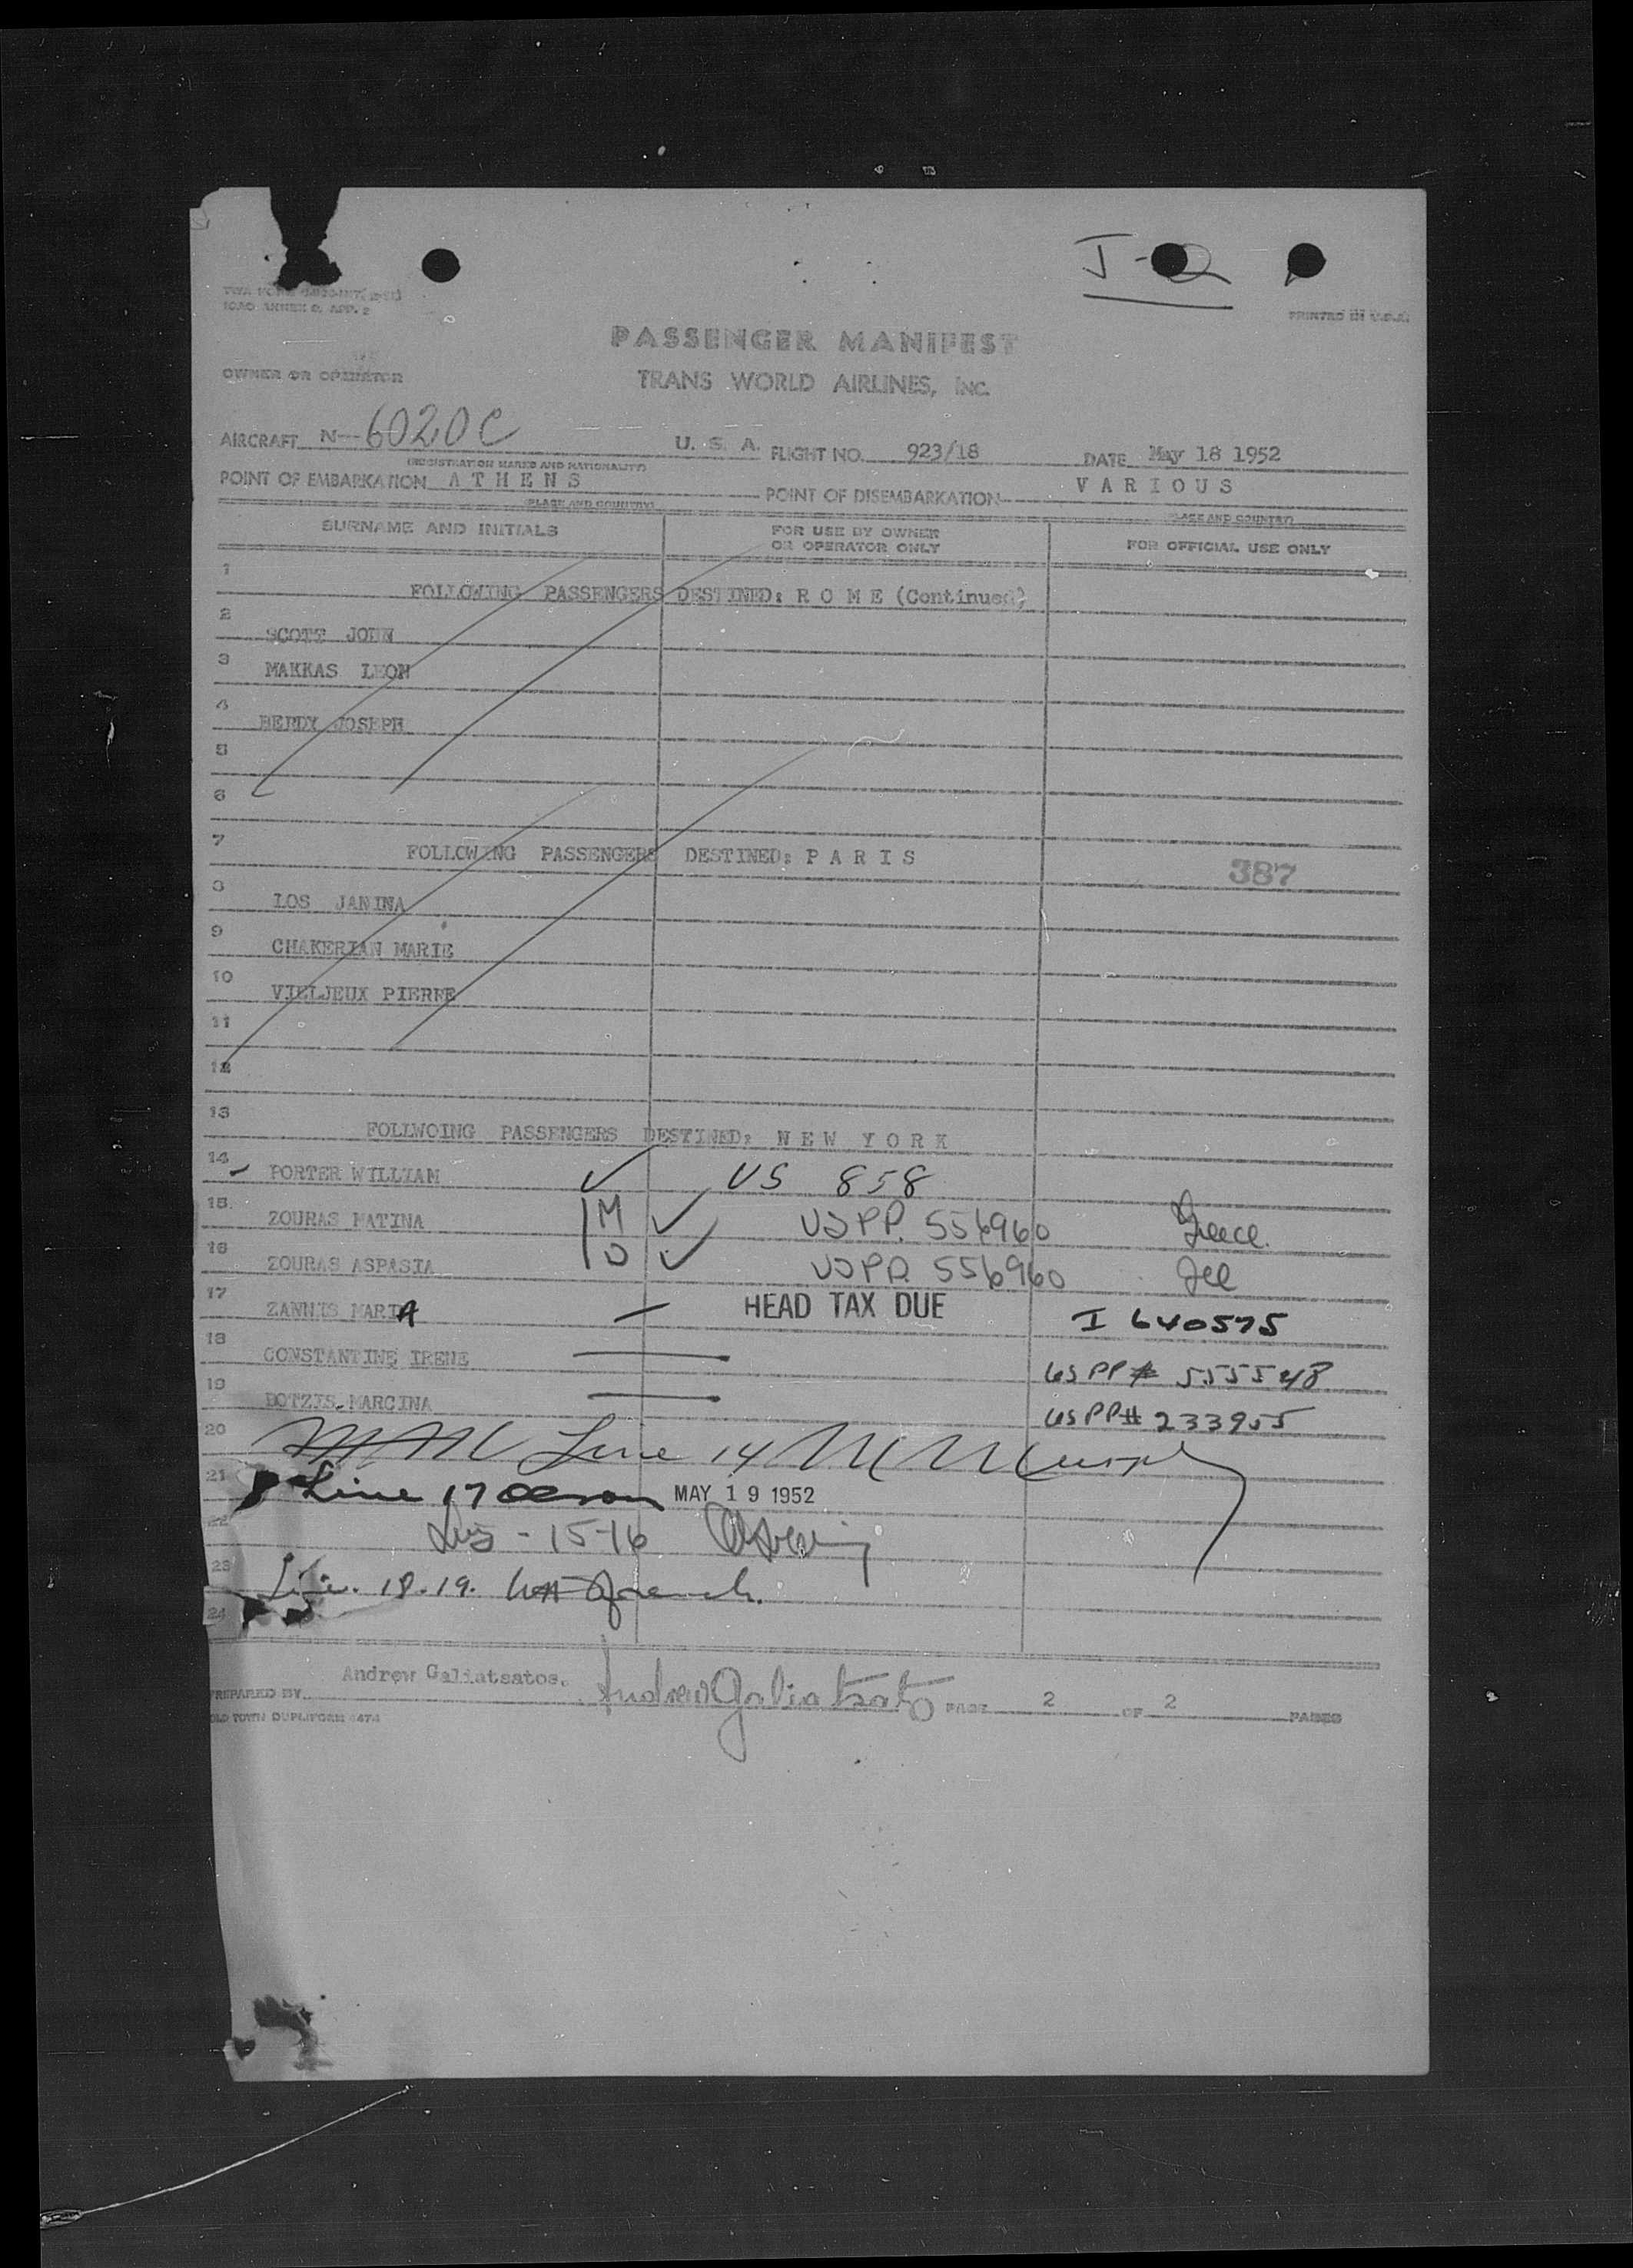 J-2
ICAO ANNEX 9, APP. 2
PRINTED IN U.S.A.
PASSENGER MANIFEST
OWNER OR OPERATOR
TRANS WORLD AIRLINES, INC.
AIRCRAFT N-6020C U. S. A. FLIGHT NO. 923/18 DATE May 18 1952
(REGISTRATION MARKS AND NATIONALITY)
POINT OF EMBARKATION A T H E N S POINT OF DISEMBARKATION V A R I O U S
(PLACE AND COUNTRY) (PLACE AND COUNTRY)
SURNAME AND INITIALS FOR USE BY OWNER OR OPERATOR ONLY FOR OFFICIAL USE ONLY
1 FOLLOWING PASSENGERS DESTINED: R O M E (Continued)
2 SCOTT JOHN
3 MAKKAS LEON
4 BERDY JOSEPH
5
6
7 FOLLOWING PASSENGERS DESTINED: P A R I S
387
8 LOS JANINA
9 CHAKERIAN MARIE
10 VIELJEUX PIERRE
11
12
13 FOLLWOING PASSENGERS DESTINED: N E W Y O R K
14 PORTER WILLIAM ✓ US 858
15 ZOURAS MATINA M ✓ USPP. 556960 Greece.
16 ZOURAS ASPASIA D ✓ USPP. 556960
17 ZANNIS MARIA — HEAD TAX DUE I 640575
18 CONSTANTINE IRENE — US PP # 555548
19 BOTZIS MARCINA — US PP# 233955
20 Line 14
21 Line 17 MAY 19 1952
22 15-16
23 Line. 18.19.
24
PREPARED BY Andrew Galiatsatos. Andrew Galiatsatos PAGE 2 OF 2 PAGES
OLD TOWN DUPLIFORM 4474